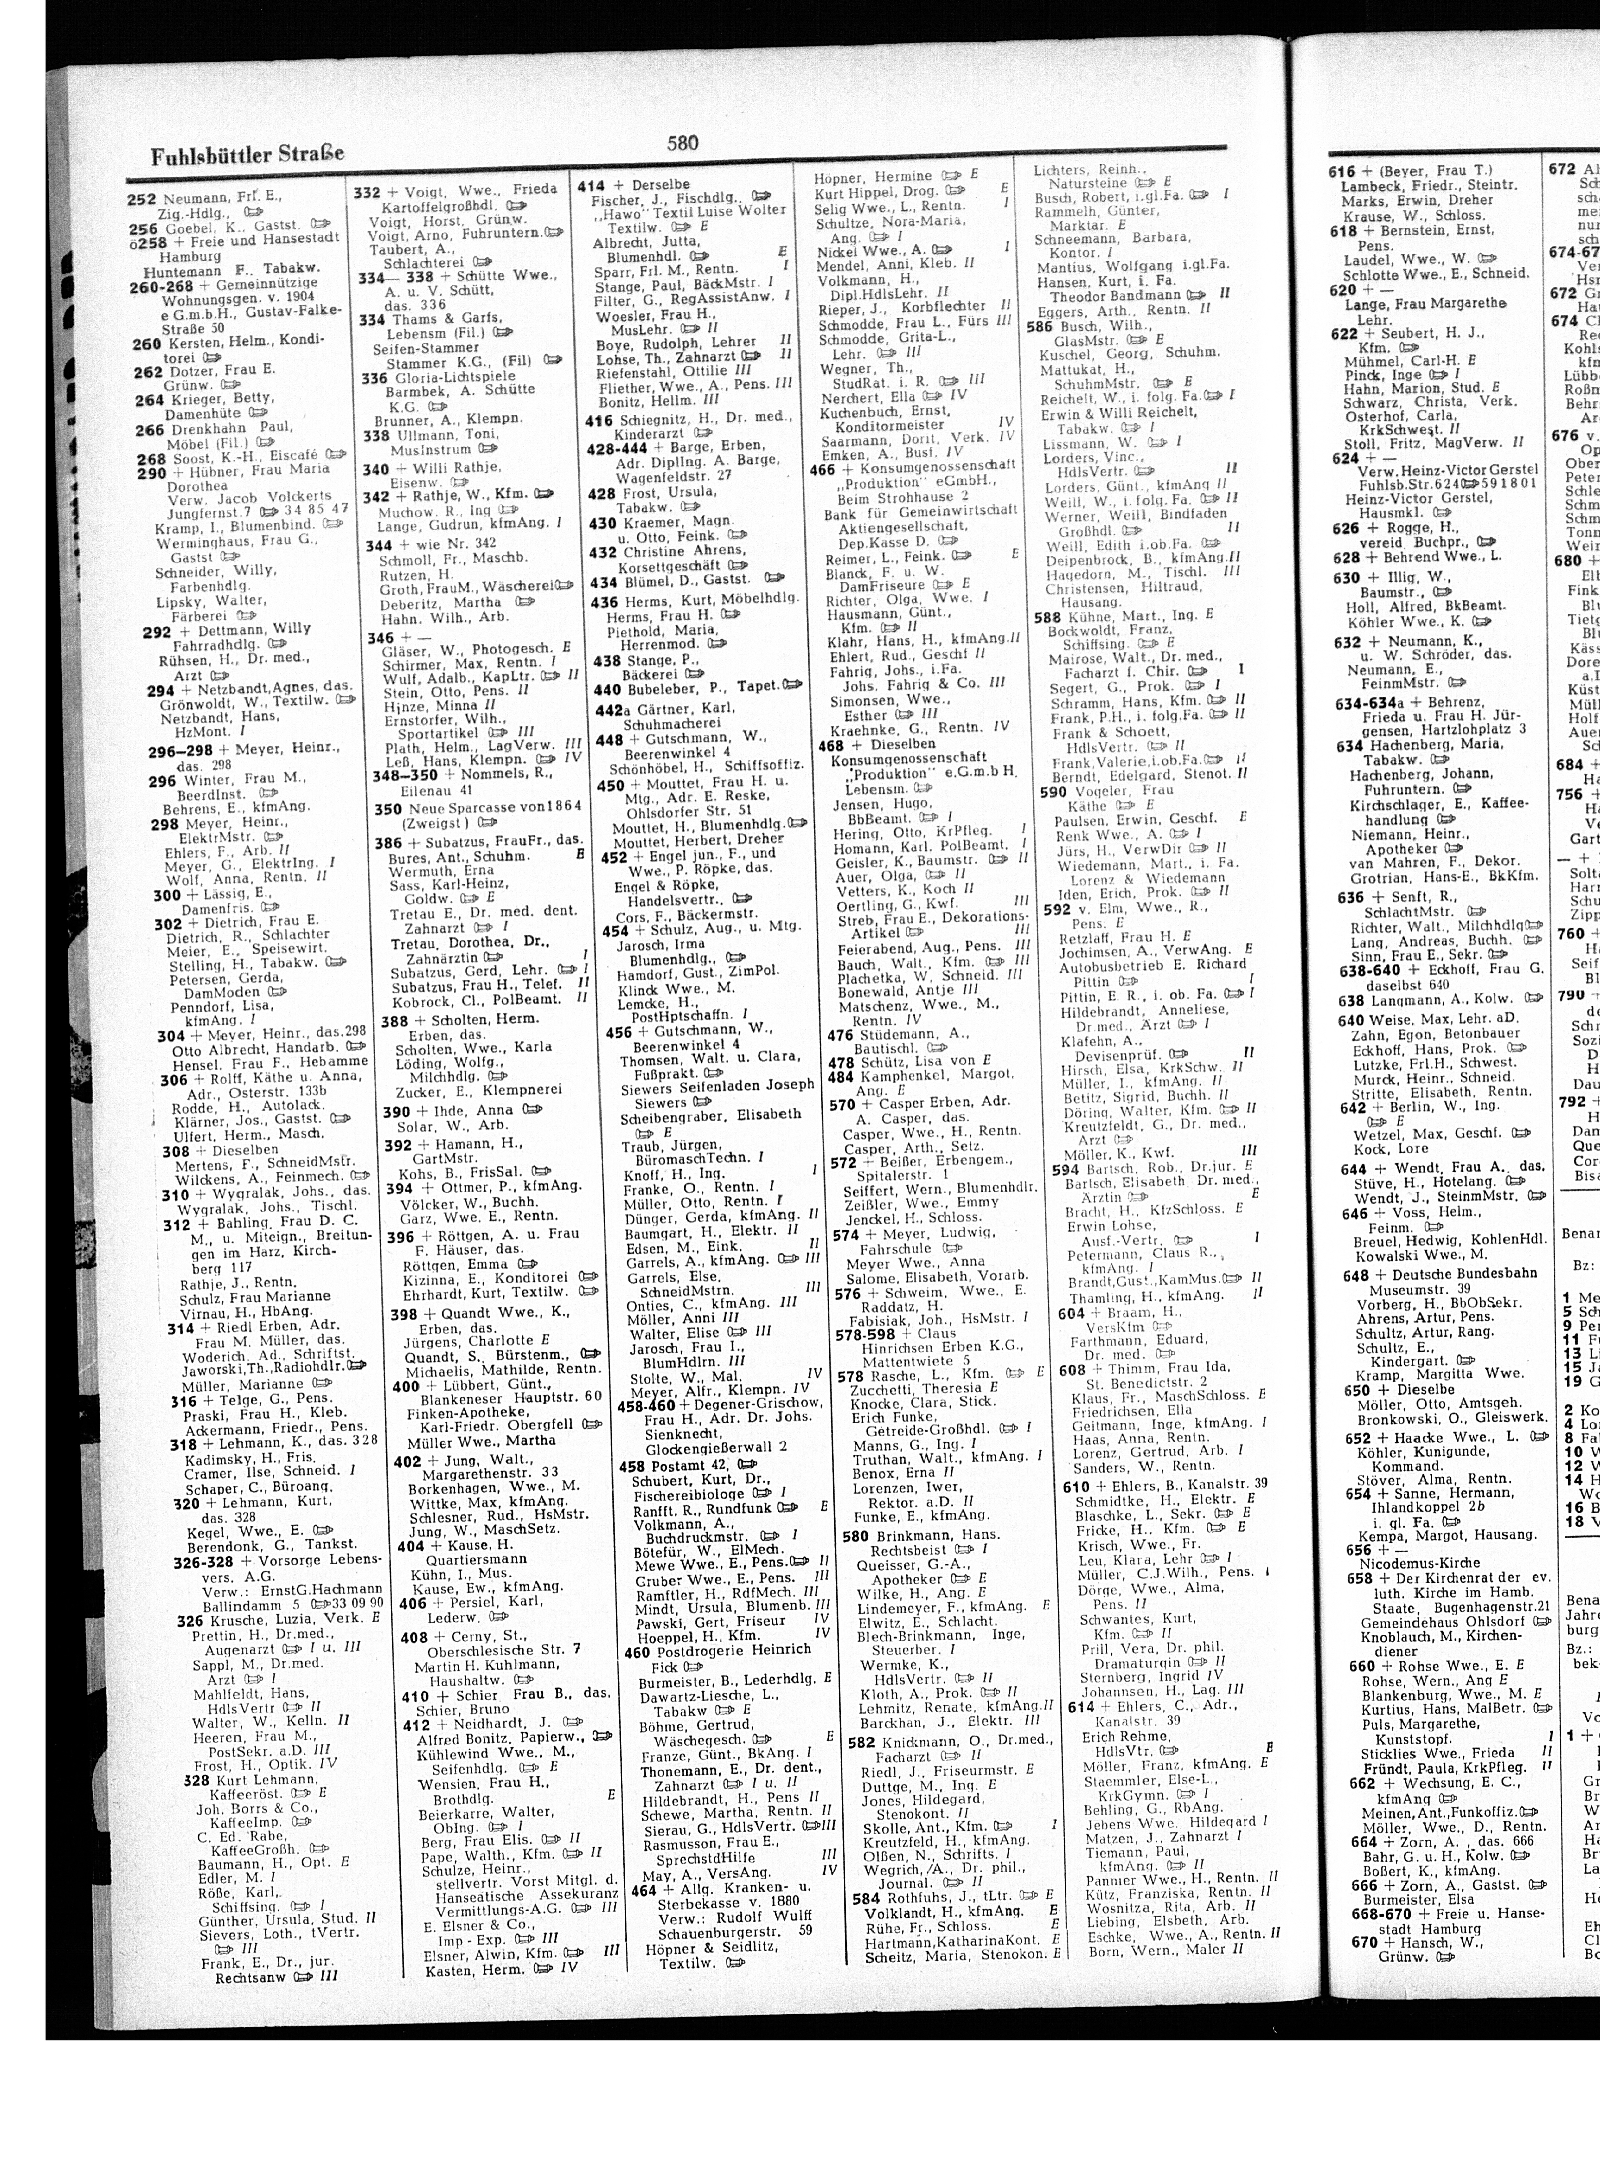 Fuhlsbüttler Straße
580
252 Neumann, Frl. E.,
Zig.-Hdlg.,
256 Goebel, K., Gastst.
ö258 + Freie und Hansestadt
Hamburg
Huntemann F., Tabakw.
260-268 + Gemeinnützige
Wohnungsgen. v. 1904
e G.m.b.H., Gustav-Falke-
Straße 50
260 Kersten, Helm., Kondi-
torei
262 Dotzer, Frau E.
Grünw.
264 Krieger, Betty,
Damenhüte
266 Drenkhahn Paul,
Möbel (Fil.)
268 Soost, K.-H., Eiscafé
290 + Hübner, Frau Maria
Dorothea
Verw. Jacob Volckerts
Jungfernst. 7 34 85 47
Kramp, I., Blumenbind.
Werminghaus, Frau G.,
Gastst
Schneider, Willy,
Farbenhdlg.
Lipsky, Walter,
Färberei
292 + Dettmann, Willy
Fahrradhdlg.
Rühsen, H., Dr. med.,
Arzt
294 + Netzbandt, Agnes, das.
Grönwoldt, W., Textilw.
Netzbandt, Hans,
HzMont. I
296—298 + Meyer, Heinr.,
das. 298
296 Winter, Frau M.,
BeerdInst.
Behrens, E., kfmAng.
298 Meyer, Heinr.,
ElektrMstr.
Ehlers, F., Arb. II
Meyer, G., ElektrIng. I
Wolf, Anna, Rentn. II
300 + Lässig, E.,
Damenfris.
302 + Dietrich, Frau E.
Dietrich, R., Schlachter
Meier, E., Speisewirt.
Stelling, H., Tabakw.
Petersen, Gerda,
DamModen
Penndorf, Lisa,
kfmAng. I
304 + Meyer, Heinr., das. 298
Otto Albrecht, Handarb.
Hensel, Frau F., Hebamme
306 + Rolff, Käthe u. Anna,
Adr., Osterstr. 133b
Rodde, H., Autolack.
Klärner, Jos., Gastst.
Ulfert, Herm., Masch.
308 + Dieselben
Mertens, F., SchneidMstr.
Wilckens, A., Feinmech.
310 + Wygralak, Johs., das.
Wygralak, Johs., Tischl.
312 + Bahling, Frau D. C.
M., u. Miteign., Breitun-
gen im Harz, Kirch-
berg 117
Rathje, J., Rentn.
Schulz, Frau Marianne
Virnau, H., HbAng.
314 + Riedl Erben, Adr.
Frau M. Müller, das.
Woderich, Ad., Schriftst.
Jaworski, Th., Radiohdlr.
Müller, Marianne
316 + Telge, G., Pens.
Praski, Frau H., Kleb.
Ackermann, Friedr., Pens.
318 + Lehmann, K., das. 328
Kadimsky, H., Fris.
Cramer, Ilse, Schneid. I
Schaper, C., Büroang.
320 + Lehmann, Kurt,
das. 328
Kegel, Wwe., E.
Berendonk, G., Tankst.
326-328 + Vorsorge Lebens-
vers. A.G.
Verw.: Ernst G. Hachmann
Ballindamm 5 33 09 90
326 Krusche, Luzia, Verk. E
Prettin, H., Dr.med.,
Augenarzt I u. III
Sappl, M., Dr.med.
Arzt I
Mahlfeldt, Hans,
HdlsVertr II
Walter, W., Kelln. II
Heeren, Frau M.,
PostSekr. a.D. III
Frost, H., Optik. IV
328 Kurt Lehmann,
Kaffeeröst. E
Joh. Borrs & Co.,
KaffeeImp.
C. Ed. Rabe,
KaffeeGroßh.
Baumann, H., Opt. E
Edler, M. I
Röße, Karl,
Schiffsing. I
Günther, Ursula, Stud. II
Sievers, Loth., tVertr.
III
Frank, E., Dr., jur.
Rechtsanw III
332 + Voigt, Wwe., Frieda
Kartoffelgroßhdl.
Voigt, Horst, Grünw.
Voigt, Arno, Fuhruntern.
Taubert, A.,
Schlachterei
334— 338 + Schütte Wwe.,
A. u. V. Schütt,
das. 336
334 Thams & Garfs,
Lebensm (Fil.)
Seifen-Stammer
Stammer K.G., (Fil)
336 Gloria-Lichtspiele
Barmbek, A. Schütte
K.G.
Brunner, A., Klempn.
338 Ullmann, Toni,
MusInstrum
340 + Willi Rathje,
Eisenw.
342 + Rathje, W., Kfm.
Muchow, R., Ing
Lange, Gudrun, kfmAng. I
344 + wie Nr. 342
Schmoll, Fr., Maschb.
Rutzen, H.
Groth, Frau M., Wäscherei
Deberitz, Martha
Hahn, Wilh., Arb.
346 + —
Gläser, W., Photogesch. E
Schirmer, Max, Rentn. I
Wulf, Adalb., KapLtr. II
Stein, Otto, Pens. II
Hinze, Minna II
Ernstorfer, Wilh.,
Sportartikel III
Plath, Helm., LagVerw. III
Leß, Hans, Klempn. IV
348—350 + Nommels, R.,
Eilenau 41
350 Neue Sparcasse von 1864
(Zweigst)
386 + Subatzus, Frau Fr., das.
Bures, Ant., Schuhm. E
Wermuth, Erna
Sass, Karl-Heinz,
Goldw. E
Tretau E., Dr. med. dent.
Zahnarzt I
Tretau, Dorothea, Dr.,
Zahnärztin I
Subatzus, Gerd, Lehr. I
Subatzus, Frau H., Telef. II
Kobrock, Cl., PolBeamt. II
388 + Scholten, Herm.
Erben, das.
Scholten, Wwe., Karla
Löding, Wolfg.,
Milchhdlg.
Zucker, E., Klempnerei
390 + Ihde, Anna
Solar, W., Arb.
392 + Hamann, H.,
GartMstr.
Kohs, B., FrisSal.
394 + Ottmer, P., kfmAng.
Völcker, W., Buchh.
Garz, Wwe. E., Rentn.
396 + Röttgen, A. u. Frau
F. Häuser, das.
Röttgen, Emma
Kizinna, E., Konditorei
Ehrhardt, Kurt, Textilw.
398 + Quandt Wwe., K.,
Erben, das.
Jürgens, Charlotte E
Quandt, S., Bürstenm.,
Michaelis, Mathilde, Rentn.
400 + Lübbert, Günt.,
Blankeneser Hauptstr. 60
Finken-Apotheke,
Karl-Friedr. Obergfell
Müller Wwe., Martha
402 + Jung, Walt.,
Margarethenstr. 33
Borkenhagen, Wwe., M.
Wittke, Max, kfmAng.
Schlesner, Rud., HsMstr.
Jung, W., MaschSetz.
404 + Kause, H.
Quartiersmann
Kühn, I., Mus.
Kause, Ew., kfmAng.
406 + Persiel, Karl,
Lederw.
408 + Cerny, St.,
Oberschlesische Str. 7
Martin H. Kuhlmann,
Haushaltw.
410 + Schier Frau B., das.
Schier, Bruno
412 + Neidhardt, J.
Alfred Bonitz, Papierw.,
Kühlewind Wwe., M.,
Seifenhdlg. E
Wensien, Frau H.,
Brothdlg. E
Beierkarre, Walter,
ObIng. I
Berg, Frau Elis. II
Pape, Walth., Kfm. II
Schulze, Heinr.,
stellvertr. Vorst Mitgl. d.
Hanseatische Assekuranz
Vermittlungs-A.G. III
E. Elsner & Co.,
Imp - Exp. III
Elsner, Alwin, Kfm. III
Kasten, Herm. IV
414 + Derselbe
Fischer, J., Fischdlg.
„Hawo" Textil Luise Wolter
Textilw. E
Albrecht, Jutta,
Blumenhdl. E
Sparr, Frl. M., Rentn. I
Stange, Paul, BäckMstr. I
Filter, G., RegAssistAnw. I
Woesler, Frau H.,
MusLehr. II
Boye, Rudolph, Lehrer II
Lohse, Th., Zahnarzt II
Riefenstahl, Ottilie III
Fliether, Wwe., A., Pens. III
Bonitz, Hellm. III
416 Schiegnitz, H., Dr. med.,
Kinderarzt
428-444 + Barge, Erben,
Adr. Dipling. A. Barge,
Wagenfeldstr. 27
428 Frost, Ursula,
Tabakw.
430 Kraemer, Magn.
u. Otto, Feink.
432 Christine Ahrens,
Korsettgeschäft
434 Blümel, D., Gastst.
436 Herms, Kurt, Möbelhdlg.
Herms, Frau H.
Piethold, Maria,
Herrenmod.
438 Stange, P.,
Bäckerei
440 Bubeleber, P., Tapet.
442a Gärtner, Karl,
Schuhmacherei
448 + Gutschmann, W.,
Beerenwinkel 4
Schönhöbel, H., Schiffsoffiz.
450 + Mouttet, Frau H. u.
Mtg., Adr. E. Reske,
Ohlsdorfer Str. 51
Mouttet, H., Blumenhdlg.
Mouttet, Herbert, Dreher
452 + Engel jun., F., und
Wwe., P. Röpke, das.
Engel & Röpke,
Handelsvertr.,
Cors, F., Bäckermstr.
454 + Schulz, Aug., u. Mtg.
Jarosch, Irma
Blumenhdlg.,
Hamdorf, Gust., ZimPol.
Klinck Wwe., M.
Lemcke, H.,
PostHptschaffn. I
456 + Gutschmann, W.,
Beerenwinkel 4
Thomsen, Walt. u. Clara,
Fußprakt.
Siewers Seifenladen Joseph
Siewers
Scheibengraber, Elisabeth
E
Traub, Jürgen,
BüromaschTechn. I
Knoff, H., Ing. I
Franke, O., Rentn. I
Müller, Otto, Rentn. I
Dünger, Gerda, kfmAng. II
Baumgart, H., Elektr. II
Edsen, M., Eink. II
Garrels, A., kfmAng. III
Garrels, Else,
SchneidMstrn. III
Onties, C., kfmAng. III
Möller, Anni III
Walter, Elise III
Jarosch, Frau I.,
BlumHdlrn. III
Stolte, W., Mal. IV
Meyer, Alfr., Klempn. IV
458-460 + Degener-Grischow,
Frau H., Adr. Dr. Johs.
Sienknecht,
Glockengießerwall 2
458 Postamt 42,
Schubert, Kurt, Dr.,
Fischereibiologe I
Ranfft, R., Rundfunk E
Volkmann, A.,
Buchdruckmstr. I
Bötefür, W., ElMech.
Mewe Wwe., E., Pens. II
Gruber Wwe., E., Pens. III
Ramftler, H., RdfMech. III
Mindt, Ursula, Blumenb. III
Pawski, Gert, Friseur IV
Hoeppel, H., Kfm. IV
460 Postdrogerie Heinrich
Fick
Burmeister, B., Lederhdlg. E
Dawartz-Liesche, L.,
Tabakw E
Böhme, Gertrud,
Wäschegesch. E
Franze, Günt., BkAng. I
Thonemann, E., Dr. dent.,
Zahnarzt I u. II
Hildebrandt, H., Pens II
Schewe, Martha, Rentn. II
Sierau, G., HdlsVertr. III
Rasmusson, Frau E.,
SprechstdHilfe III
May, A., VersAng. IV
464 + Allg. Kranken- u.
Sterbekasse v. 1880
Verw.: Rudolf Wulff
Schauenburgerstr. 59
Höpner & Seidlitz,
Textilw.
Höpner, Hermine E
Kurt Hippel, Drog. E
Selig Wwe., L., Rentn. I
Schultze, Nora-Maria,
Ang. I
Nickel Wwe., A. I
Mendel, Anni, Kleb. II
Volkmann, H.,
Dipl.HdlsLehr. II
Rieper, J., Korbflechter II
Schmodde, Frau L., Fürs III
Schmodde, Grita-L.,
Lehr. III
Wegner, Th.,
StudRat. i. R. III
Nerchert, Ella IV
Kuchenbuch, Ernst,
Konditormeister IV
Saarmann, Dorit, Verk. IV
Emken, A., Busf. IV
466 + Konsumgenossenschaft
„Produktion" eGmbH.,
Beim Strohhause 2
Bank für Gemeinwirtschaft
Aktiengesellschaft,
Dep.Kasse D.
Reimer, L., Feink. E
Blanck, F. u. W.
DamFriseure E
Richter, Olga, Wwe. I
Hausmann, Günt.,
Kfm. II
Klahr, Hans, H., kfmAng. II
Ehlert, Rud., Geschf II
Fahrig, Johs., i.Fa.
Johs. Fahrig & Co. III
Simonsen, Wwe.,
Esther III
Kraehnke, G., Rentn. IV
468 + Dieselben
Konsumgenossenschaft
"Produktion" e.G.m.b H.
Lebensm.
Jensen, Hugo,
BbBeamt. I
Hering, Otto, KrPfleg. I
Homann, Karl, PolBeamt. I
Geisler, K., Baumstr. II
Auer, Olga, II
Vetters, K., Koch II
Oertling, G., Kwf. III
Streb, Frau E., Dekorations-
Artikel III
Feierabend, Aug., Pens. III
Bauch, Walt., Kfm. III
Plachetka, W., Schneid. III
Bonewald, Antje III
Matschenz, Wwe., M.,
Rentn. IV
476 Stüdemann, A.,
Bautischl.
478 Schütz, Lisa von E
484 Kamphenkel, Margot,
Ang. E
570 + Casper Erben, Adr.
A. Casper, das.
Casper, Wwe., H., Rentn.
Casper, Arth., Setz.
572 + Beißer, Erbengem.,
Spitalerstr. 1
Seiffert, Wern., Blumenhdlr.
Zeißler, Wwe., Emmy
Jenckel, H., Schloss.
574 + Meyer, Ludwig,
Fahrschule
Meyer Wwe., Anna
Salome, Elisabeth, Vorarb.
576 + Schweim, Wwe., E.
Raddatz, H.
Fabisiak, Joh., HsMstr. I
578-598 + Claus
Hinrichsen Erben K.G.,
Mattentwiete 5
578 Rasche, L., Kfm. E
Zucchetti, Theresia E
Knocke, Clara, Stick.
Erich Funke,
Getreide-Großhdl. I
Manns, G., Ing. I
Truthan, Walt., kfmAng. I
Benox, Erna II
Lorenzen, Iwer,
Rektor. a.D. II
Funke, E., kfmAng.
580 Brinkmann, Hans,
Rechtsbeist I
Queisser, G.-A.,
Apotheker E
Wilke, H., Ang. E
Lindemeyer, F., kfmAng. E
Elwitz, E., Schlacht.
Blech-Brinkmann, Inge,
Steuerber. I
Wermke, K.,
HdlsVertr. II
Kloth, A., Prok. II
Lehmitz, Renate, kfmAng. II
Barckhan, J., Elektr. III
582 Knickmann, O., Dr.med.,
Facharzt II
Riedl, J., Friseurmstr. E
Duttge, M., Ing. E
Jones, Hildegard,
Stenokont. II
Skolle, Ant., Kfm. I
Kreutzfeld, H., kfmAng.
Olßen, N., Schrifts. I
Wegrich, A., Dr. phil.,
Journal. II
584 Rothfuhs, J., tLtr. E
Volklandt, H., kfmAng. E
Rühe, Fr., Schloss. E
Hartmann, Katharina Kont. E
Scheitz, Maria, Stenokon. E
Lichters, Reinh.,
Natursteine E
Busch, Robert, i.gl.Fa. I
Rammelh, Günter,
Marktar. E
Schneemann, Barbara,
Kontor. I
Mantius, Wolfgang i.gl.Fa.
Hansen, Kurt, i. Fa.
Theodor Bandmann II
Eggers, Arth., Rentn. II
586 Busch, Wilh.,
GlasMstr. E
Kuschel, Georg, Schuhm.
Mattukat, H.,
SchuhmMstr. E
Reichelt, W., i. folg. Fa. I
Erwin & Willi Reichelt,
Tabakw. I
Lissmann, W. I
Lorders, Vinc.,
HdlsVertr. II
Lorders, Günt., kfmAng II
Weill, W., i. folg. Fa. II
Werner, Weill, Bindfaden
Großhdl. II
Weill, Edith i.ob.Fa.
Deipenbrock, B., kfmAng. II
Hagedorn, M., Tischl. III
Christensen, Hiltraud,
Hausang.
588 Kühne, Mart., Ing. E
Bockwoldt, Franz,
Schiffsing. E
Mairose, Walt., Dr. med.,
Facharzt f. Chir. I
Segert, G., Prok. I
Schramm, Hans, Kfm. II
Frank, P.H., i. folg.Fa. II
Frank & Schoett,
HdlsVertr. II
Frank, Valerie, i.ob.Fa. II
Berndt, Edelgard, Stenot. II
590 Vogeler, Frau
Käthe E
Paulsen, Erwin, Geschf. E
Renk Wwe., A. I
Jürs, H., VerwDir II
Wiedemann, Mart., i. Fa.
Lorenz & Wiedemann
Iden, Erich, Prok. II
592 v. Elm, Wwe., R.,
Pens. E
Retzlaff, Frau H. E
Jochimsen, A., VerwAng. E
Autobusbetrieb E. Richard
Pittin I
Pittin, E. R., i. ob. Fa. I
Hildebrandt, Anneliese,
Dr.med., Arzt I
Klafehn, A.,
Devisenprüf. II
Hirsch, Elsa, KrkSchw. II
Müller, I., kfmAng. II
Betitz, Sigrid, Buchh. II
Döring, Walter, Kfm. II
Kreutzfeldt, G., Dr. med.,
Arzt
Möller, K., Kwf. III
594 Bartsch, Rob., Dr.jur. E
Bartsch, Elisabeth Dr. med.,
Ärztin E
Bracht, H., KfzSchloss. E
Erwin Lohse,
Ausf.-Vertr. I
Petermann, Claus R.,
kfmAng. I
Brandt, Gust., KamMus. II
Thamling, H., kfmAng. II
604 + Braam, H.,
VersKfm
Farthmann, Eduard,
Dr. med.
608 + Thimm, Frau Ida,
St. Benedictstr. 2
Klaus, Fr., MaschSchloss. E
Friedrichsen, Ella
Geitmann, Inge, kfmAng. I
Haas, Anna, Rentn.
Lorenz, Gertrud, Arb. I
Sanders, W., Rentn.
610 + Ehlers, B., Kanalstr. 39
Schmidtke, H., Elektr. E
Blaschke, L., Sekr. E
Fricke, H., Kfm. E
Krisch, Wwe., Fr.
Leu, Klara, Lehr I
Müller, C.J.Wilh., Pens. I
Dörge, Wwe., Alma,
Pens. II
Schwantes, Kurt,
Kfm. II
Prill, Vera, Dr. phil.
Dramaturgin II
Sternberg, Ingrid IV
Johannsen, H., Lag. III
614 + Ehlers, C., Adr.,
Kanalstr. 39
Erich Rehme,
HdlsVtr. E
Möller, Franz, kfmAng. E
Staemmler, Else-L.,
KrkGymn. I
Behling, G., RbAng.
Jebens Wwe. Hildegard I
Matzen, J., Zahnarzt I
Tiemann, Paul,
kfmAng. II
Panmer Wwe., H., Rentn. II
Kütz, Franziska, Rentn. II
Wosnitza, Rita, Arb. II
Liebing, Elsbeth, Arb.
Eschke, Wwe., A., Rentn. II
Born, Wern., Maler II
616 + (Beyer, Frau T.)
Lambeck, Friedr., Steintr.
Marks, Erwin, Dreher
Krause, W., Schloss.
618 + Bernstein, Ernst,
Pens.
Laudel, Wwe., W.
Schlotte Wwe., E., Schneid.
620 + —
Lange, Frau Margarethe
Lehr.
622 + Seubert, H. J.,
Kfm.
Mühmel, Carl-H. E
Pinck, Inge I
Hahn, Marion, Stud. E
Schwarz, Christa, Verk.
Osterhof, Carla,
KrkSchwest. II
Stoll, Fritz, MagVerw. II
624 + —
Verw. Heinz-Victor Gerstel
Fuhlsb.Str. 624 59 18 01
Heinz-Victor Gerstel,
Hausmkl.
626 + Rogge, H.,
vereid Buchpr.,
628 + Behrend Wwe., L.
630 + Illig, W.,
Baumstr.,
Holl, Alfred, BkBeamt.
Köhler Wwe., K.
632 + Neumann, K.,
u. W. Schröder, das.
Neumann, E.,
FeinmMstr.
634-634a + Behrenz,
Frieda u. Frau H. Jür-
gensen, Hartzlohplatz 3
634 Hachenberg, Maria,
Tabakw.
Hachenberg, Johann,
Fuhruntern.
Kirchschlager, E., Kaffee-
handlung
Niemann, Heinr.,
Apotheker
van Mahren, F., Dekor.
Grotrian, Hans-E., BkKfm.
636 + Senft, R.,
SchlachtMstr.
Richter, Walt., Milchhdlg
Lang, Andreas, Buchh.
Sinn, Frau E., Sekr.
638-640 + Eckhoff, Frau G.
daselbst 640
638 Langmann, A., Kolw.
640 Weise, Max, Lehr. aD.
Zahn, Egon, Betonbauer
Eckhoff, Hans, Prok.
Lutzke, Frl.H., Schwest.
Murck, Heinr., Schneid.
Stritte, Elisabeth, Rentn.
642 + Berlin, W., Ing.
E
Wetzel, Max, Geschf.
Kock, Lore
644 + Wendt, Frau A., das.
Stüve, H., Hotelang.
Wendt, J., SteinmMstr.
646 + Voss, Helm.,
Feinm.
Breuel, Hedwig, KohlenHdl.
Kowalski Wwe., M.
648 + Deutsche Bundesbahn
Museumstr. 39
Vorberg, H., BbObSekr.
Ahrens, Artur, Pens.
Schultz, Artur, Rang.
Schultz, E.,
Kindergart.
Kramp, Margitta Wwe.
650 + Dieselbe
Möller, Otto, Amtsgeh.
Bronkowski, O., Gleiswerk.
652 + Haacke Wwe., L.
Köhler, Kunigunde,
Kommand.
Stöver, Alma, Rentn.
654 + Sanne, Hermann,
Ihlandkoppel 2b
i. gl. Fa.
Kempa, Margot, Hausang.
656 + —
Nicodemus-Kirche
658 + Der Kirchenrat der ev.
luth. Kirche im Hamb.
Staate, Bugenhagenstr. 21
Gemeindehaus Ohlsdorf
Knoblauch, M., Kirchen-
diener
660 + Rohse Wwe., E. E
Rohse, Wern., Ang E
Blankenburg, Wwe., M. E
Kurtius, Hans, MalBetr.
Puls, Margarethe,
Kunststopf. I
Sticklies Wwe., Frieda II
Fründt, Paula, KrkPfleg. II
662 + Wechsung, E. C.,
kfmAng
Meinen, Ant., Funkoffiz.
Möller, Wwe., D., Rentn.
664 + Zorn, A., das. 666
Bahr, G. u. H., Kolw.
Boßert, K., kfmAng.
666 + Zorn, A., Gastst.
Burmeister, Elsa
668-670 + Freie u. Hanse-
stadt Hamburg
670 + Hansch, W.,
Grünw.
672
674-67
672
674
676 v.
680 +
684 +
756 +
760 +
790
792 +
Bz:
1
5
9
11
13
15
19
2
4
8
10
12
14
16
18
Bz.:
1 +